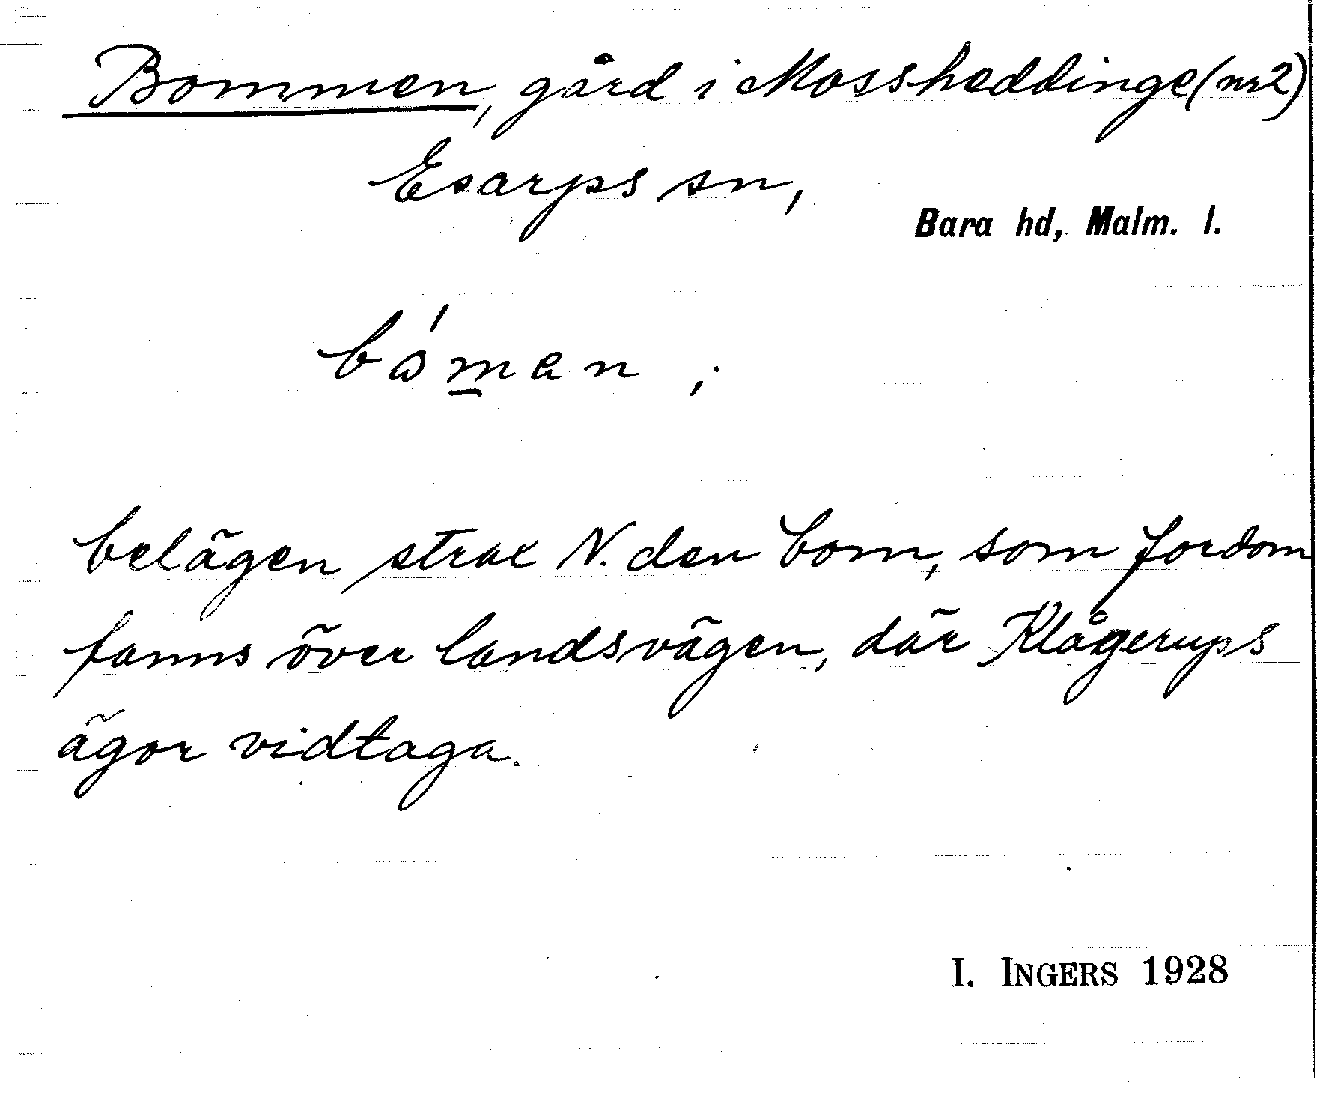 Bommen, gård i Mossheddinge (nr 2)
Esarps sn,
Bara hd, Malm. l.
bóman ;
belägen strax N. den bom, som fordom
fanns över landsvägen, där Klågerups
ägor vidtaga.
I. INGERS 1928